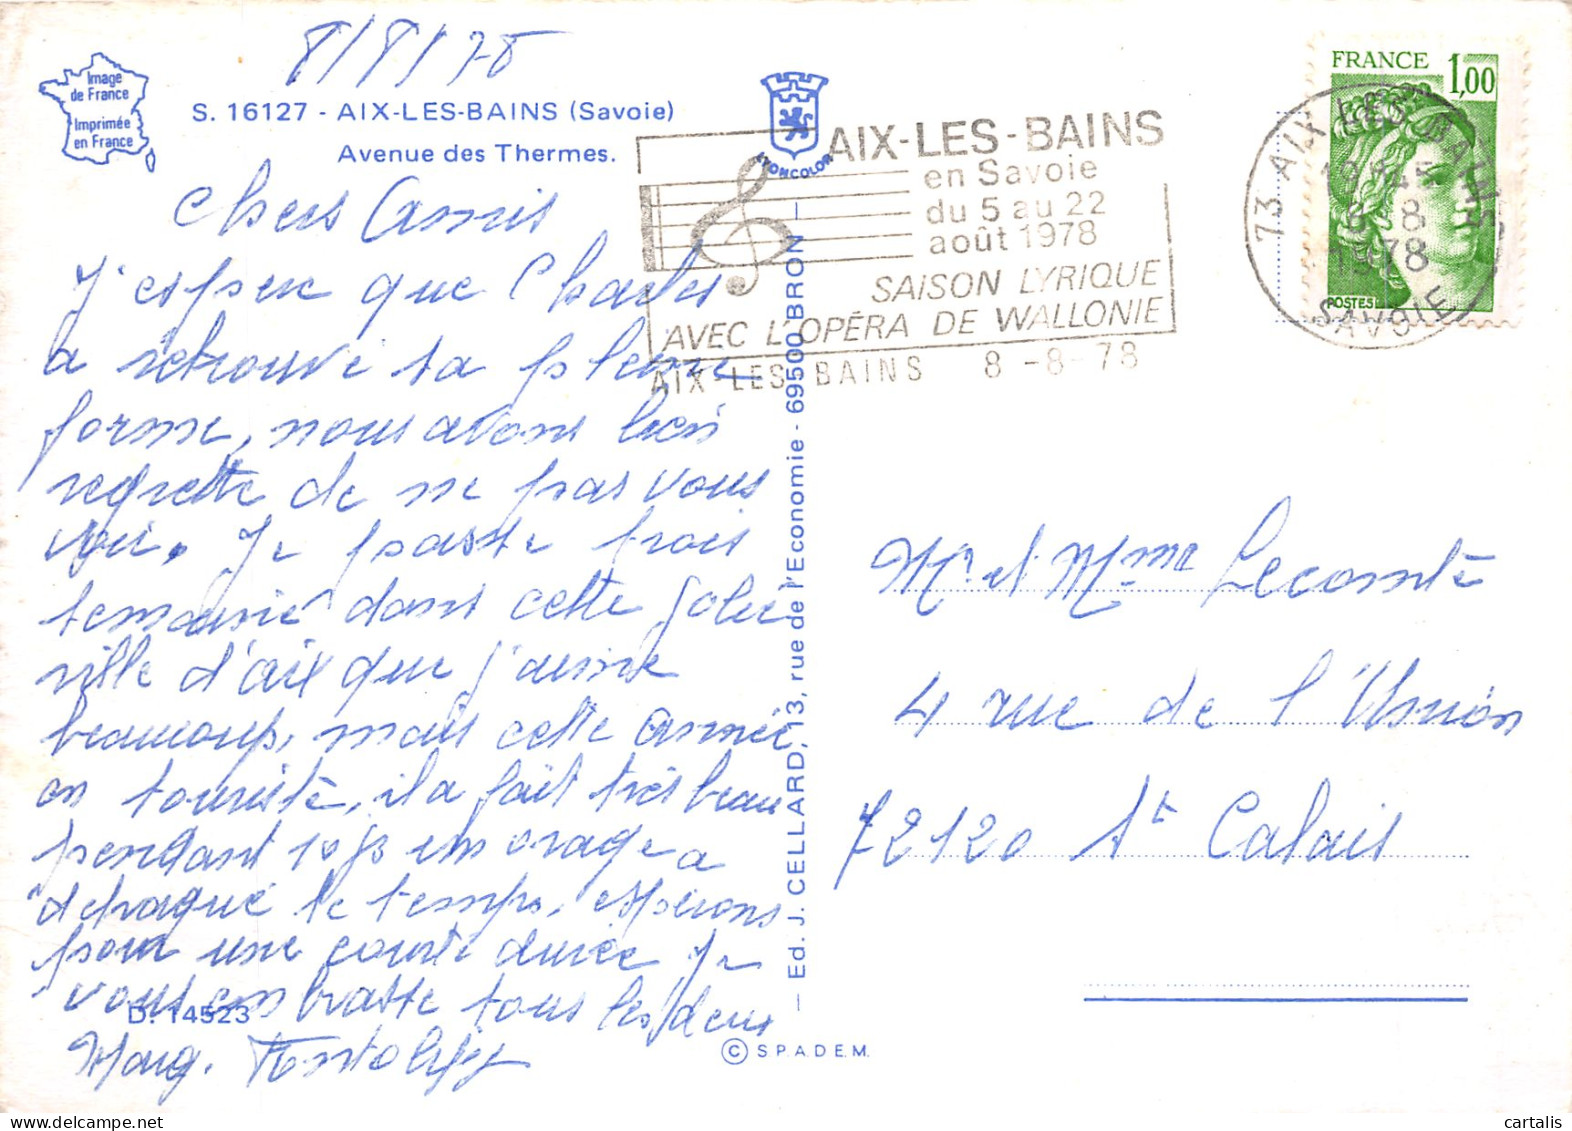 8/8/78
Image
de France
Imprimée
en France
S. 16127 - AIX-LES-BAINS (Savoie)
Avenue des Thermes.
LYONCOLOR
AIX-LES-BAINS
en Savoie
du 5 au 22
août 1978
SAISON LYRIQUE
AVEC L'OPÉRA DE WALLONIE
AIX-LES-BAINS 8-8-78
FRANCE 1,00
POSTES
73 AIX LES BAINS
8-8
1978
SAVOIE
Chers Amis
J'espère que Charles
a retrouvé sa pleine
forme, nous avons bien
regretté de ne pas vous
voir. Je passe trois
semaines dans cette jolie
ville d'aix que j'aime
beaucoup, mais cette année
en touriste, il a fait très beau
pendant 10 js un orage a
détraqué le temps, espérons
pour une courte durée Je
vous embrasse tous les deux
Marg.
D. 14523
Ed. J. CELLARD, 13, rue de l'Economie - 69500 BRON
© S.P.A.D.E.M.
Mr et Mme Lecomte
4 rue de l'Union
72120 St Calais
cartalis